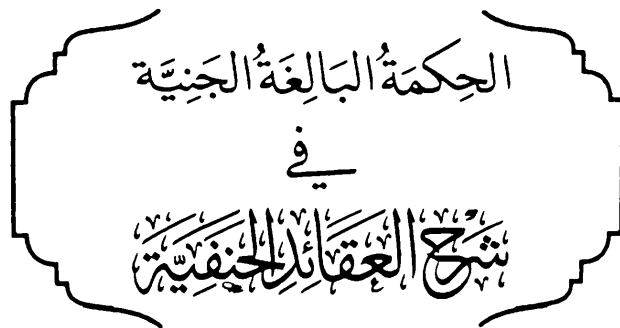 الحِكمَةُ البَالِغَةُ الجَنِيَّة
في
شَرْحِ العَقَائِدِ الحَنَفِيَّة